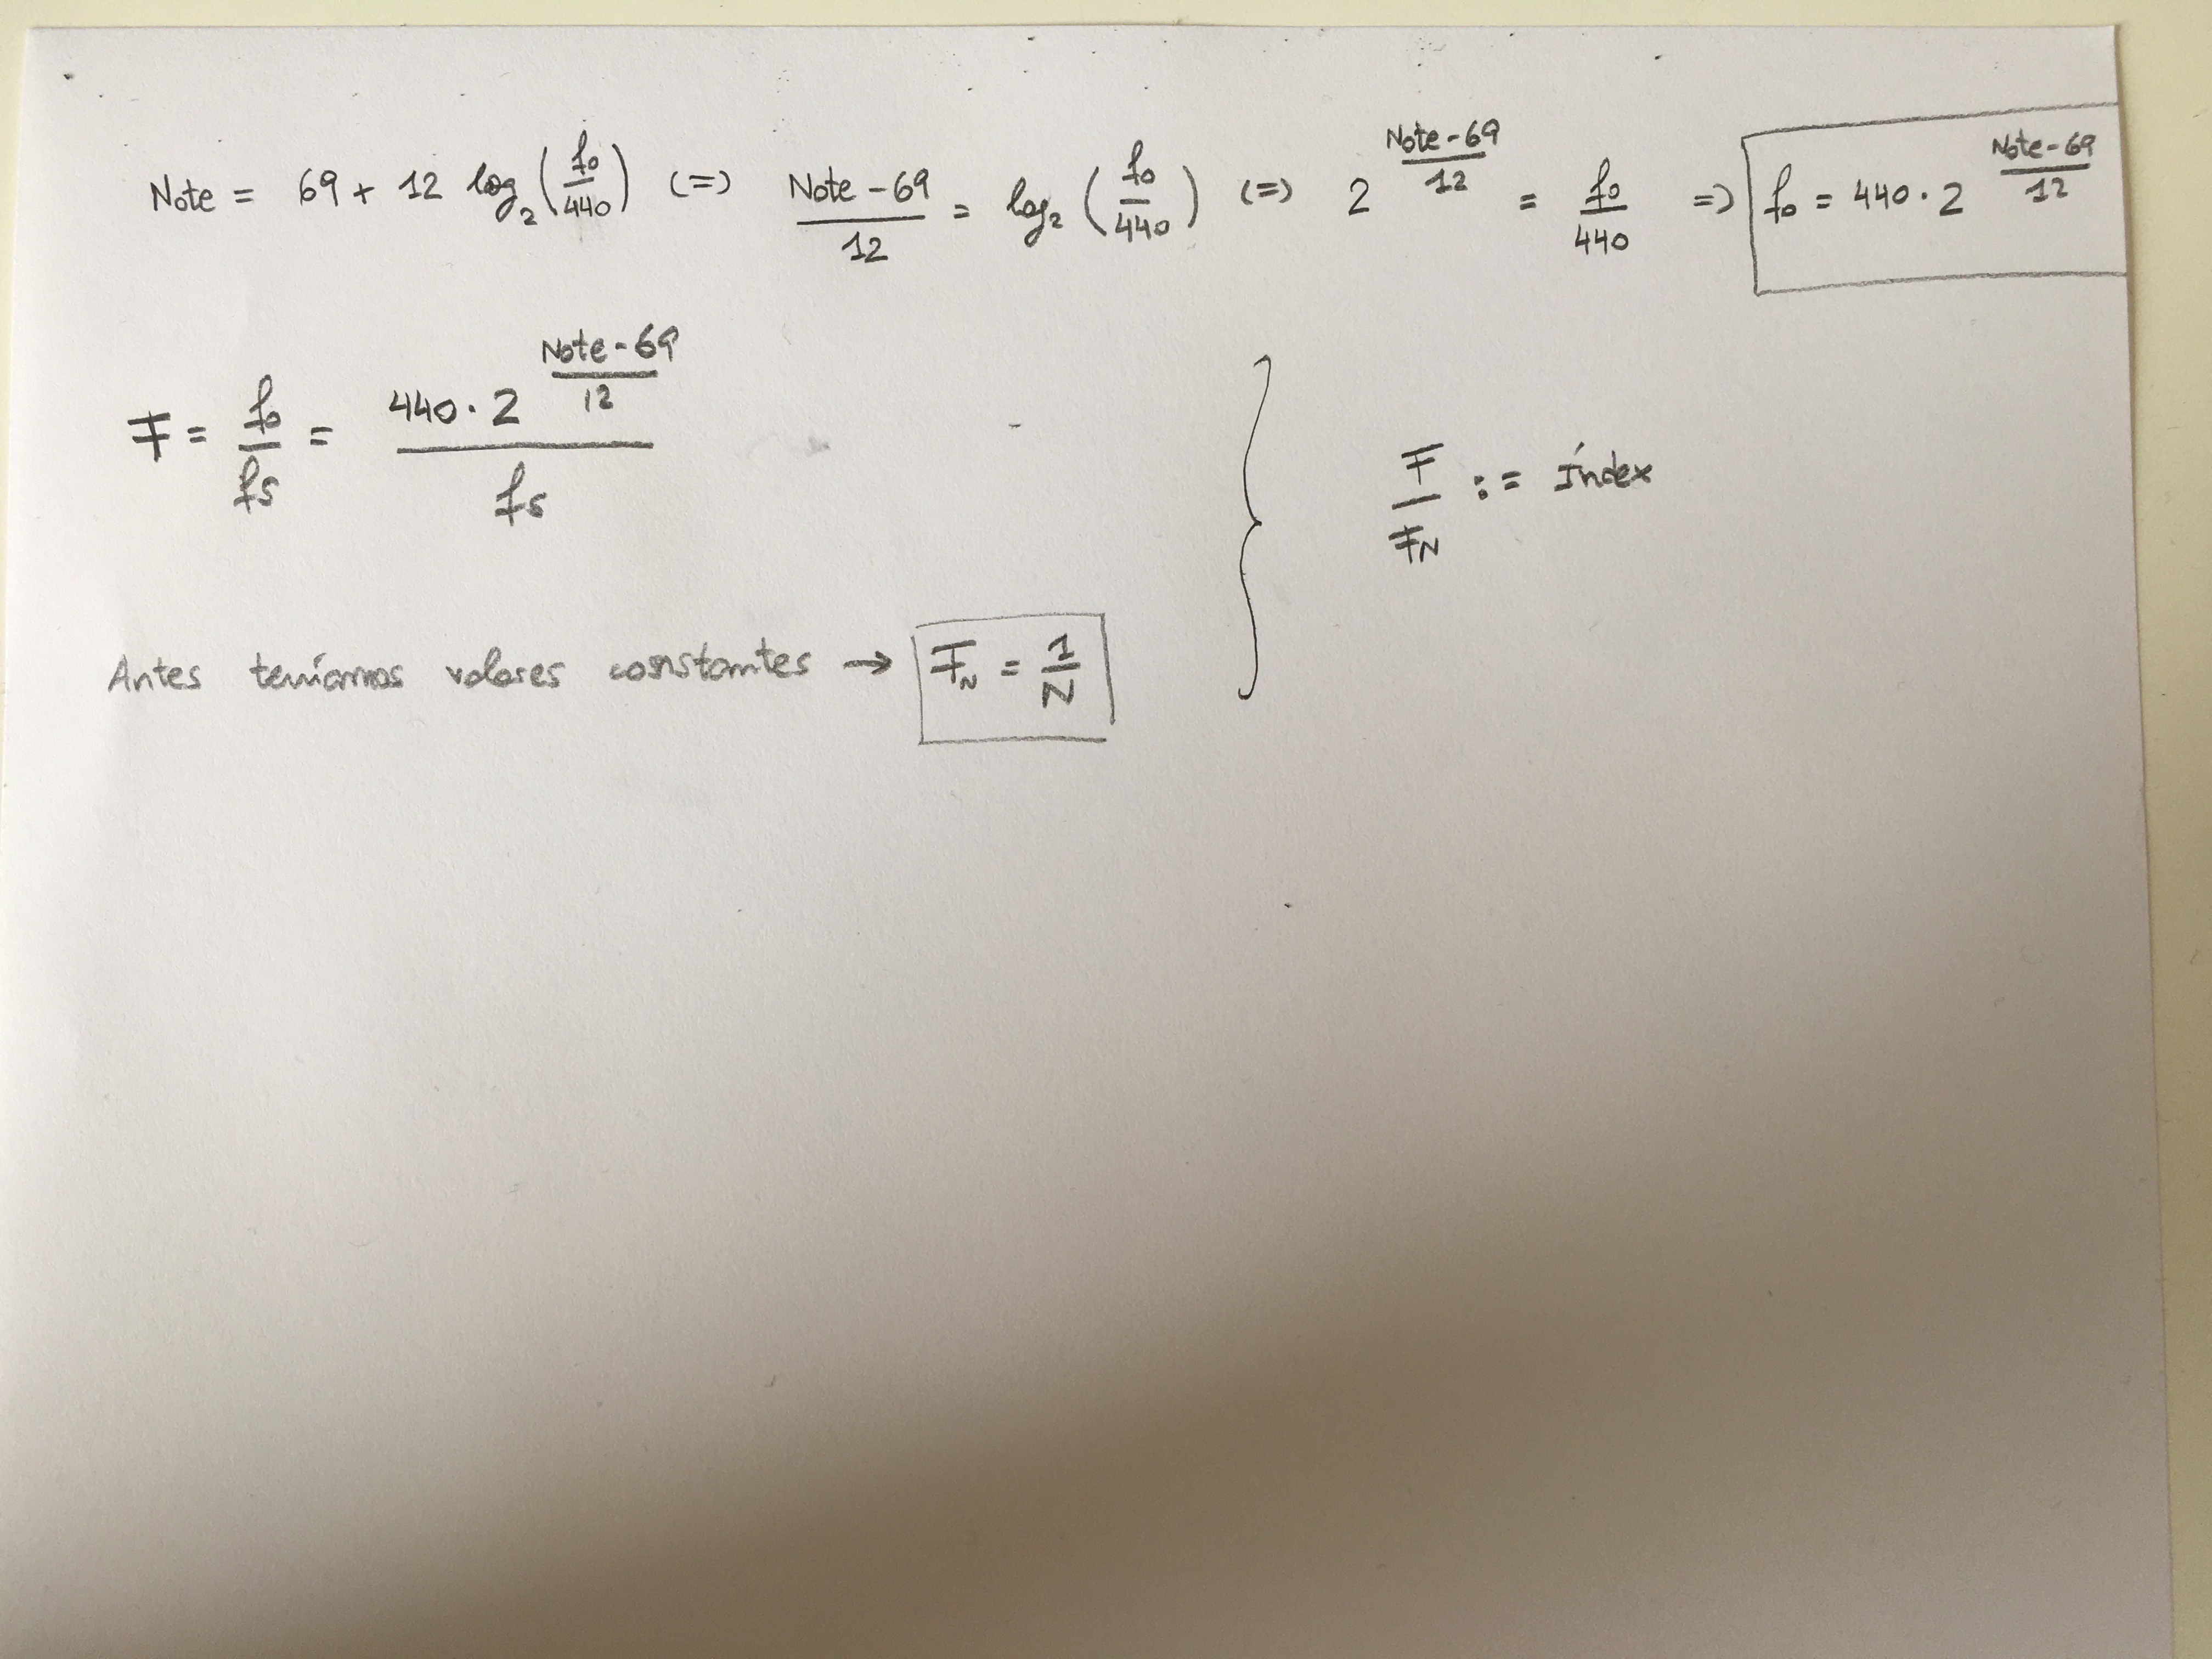 Note = 69 + 12 log₂(f₀/440) (=) (Note - 69)/12 = log₂(f₀/440) (=) 2^((Note - 69)/12) = f₀/440 =) f₀ = 440 · 2^((Note - 69)/12)
F = f₀/fs = (440 · 2^((Note - 69)/12))/fs
F/F_N := Índex
Antes teníamos valores constantes → F_N = 1/N